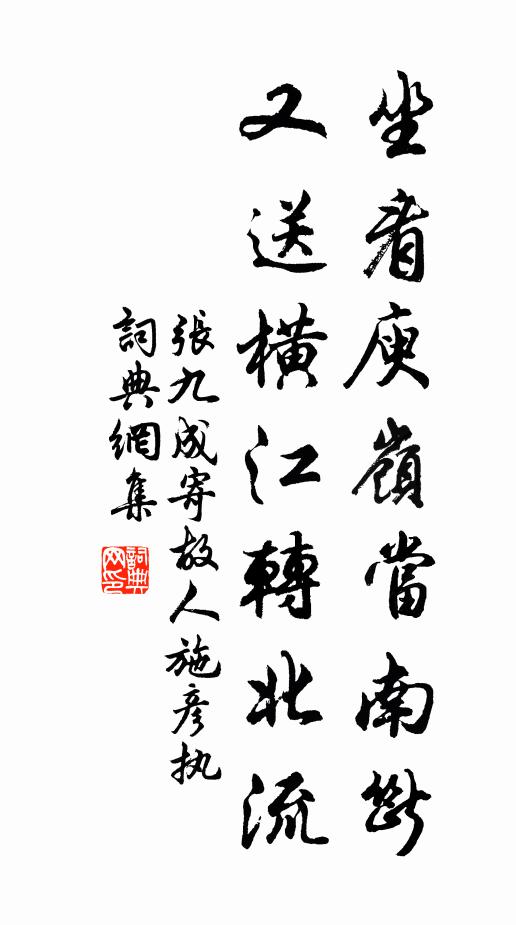 坐看庾嶺當南斷
又送橫江轉北流
張九成寄故人施彦执
詞典網集
詞典
网印